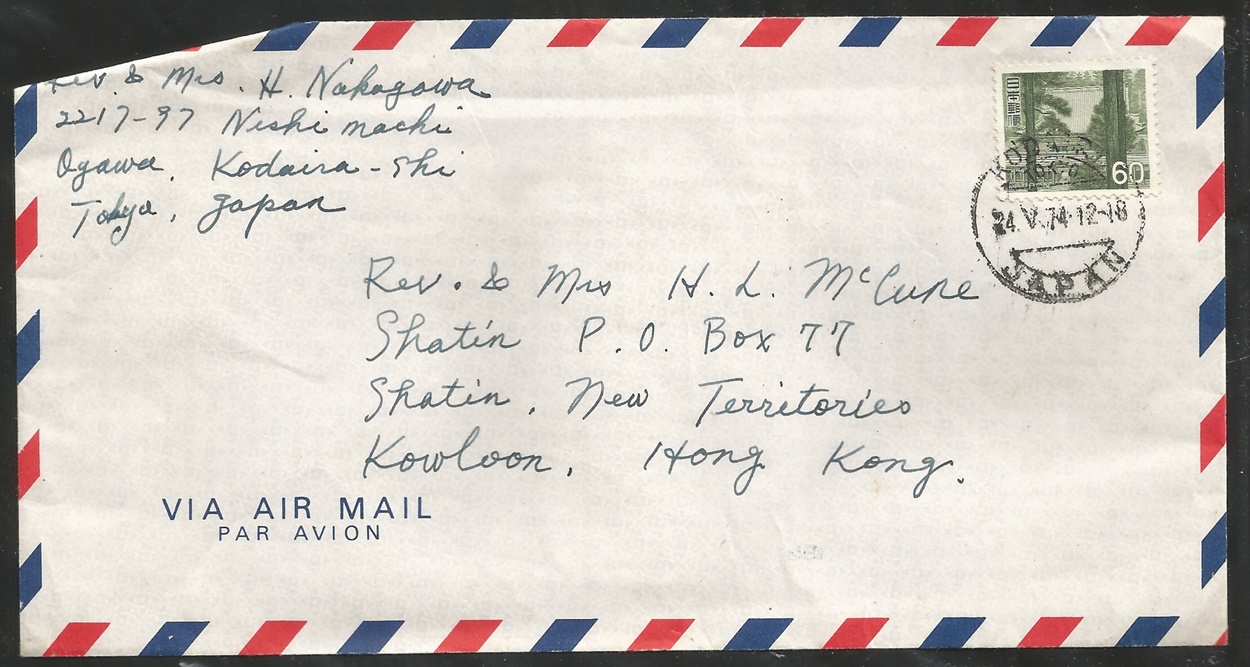 Rev. & Mrs. H. Nakagawa
2217-97 Nishi machi
Ogawa, Kodaira-shi
Tokyo, Japan
日本郵便
60
KODAIRA
TOKYO
24.V.74.12-18
JAPAN
Rev. & Mrs H. L. McCune
Shatin P.O. Box 77
Shatin, New Territories
Kowloon, Hong Kong.
VIA AIR MAIL
PAR AVION